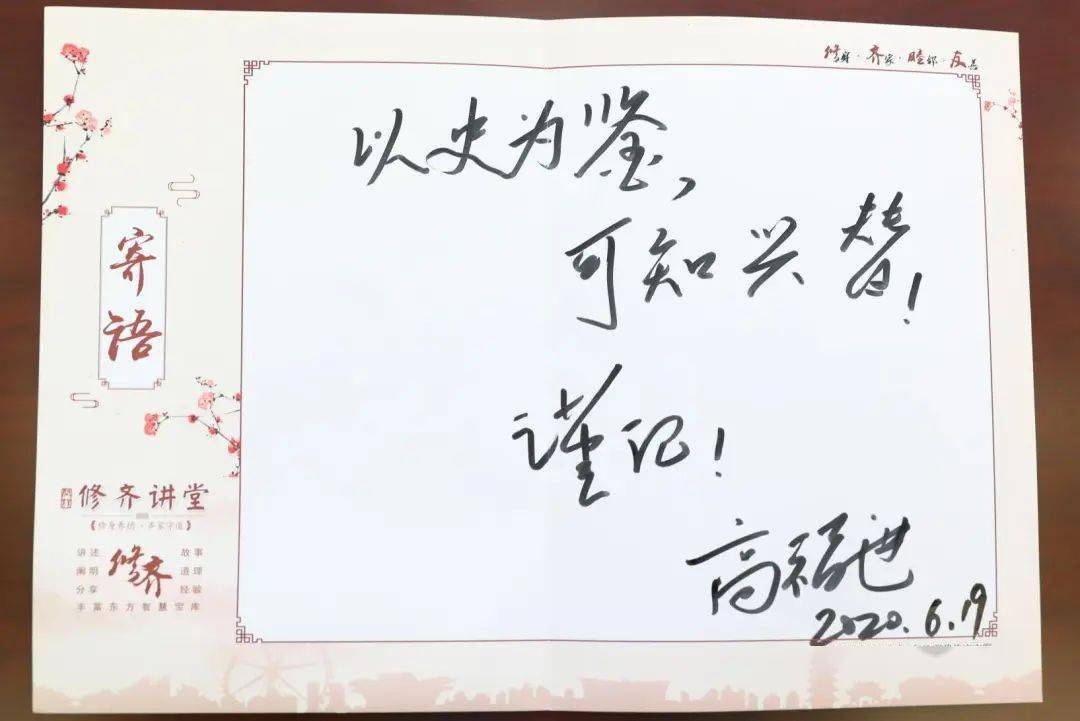 修身·齐家·睦邻·友善
以史为鉴,
可知兴替!
谨记!
高福进
2020.6.19
寄语
修齐讲堂
讲述 故事
阐明 修齐 道理
分享 经验
丰富东方智慧宝库